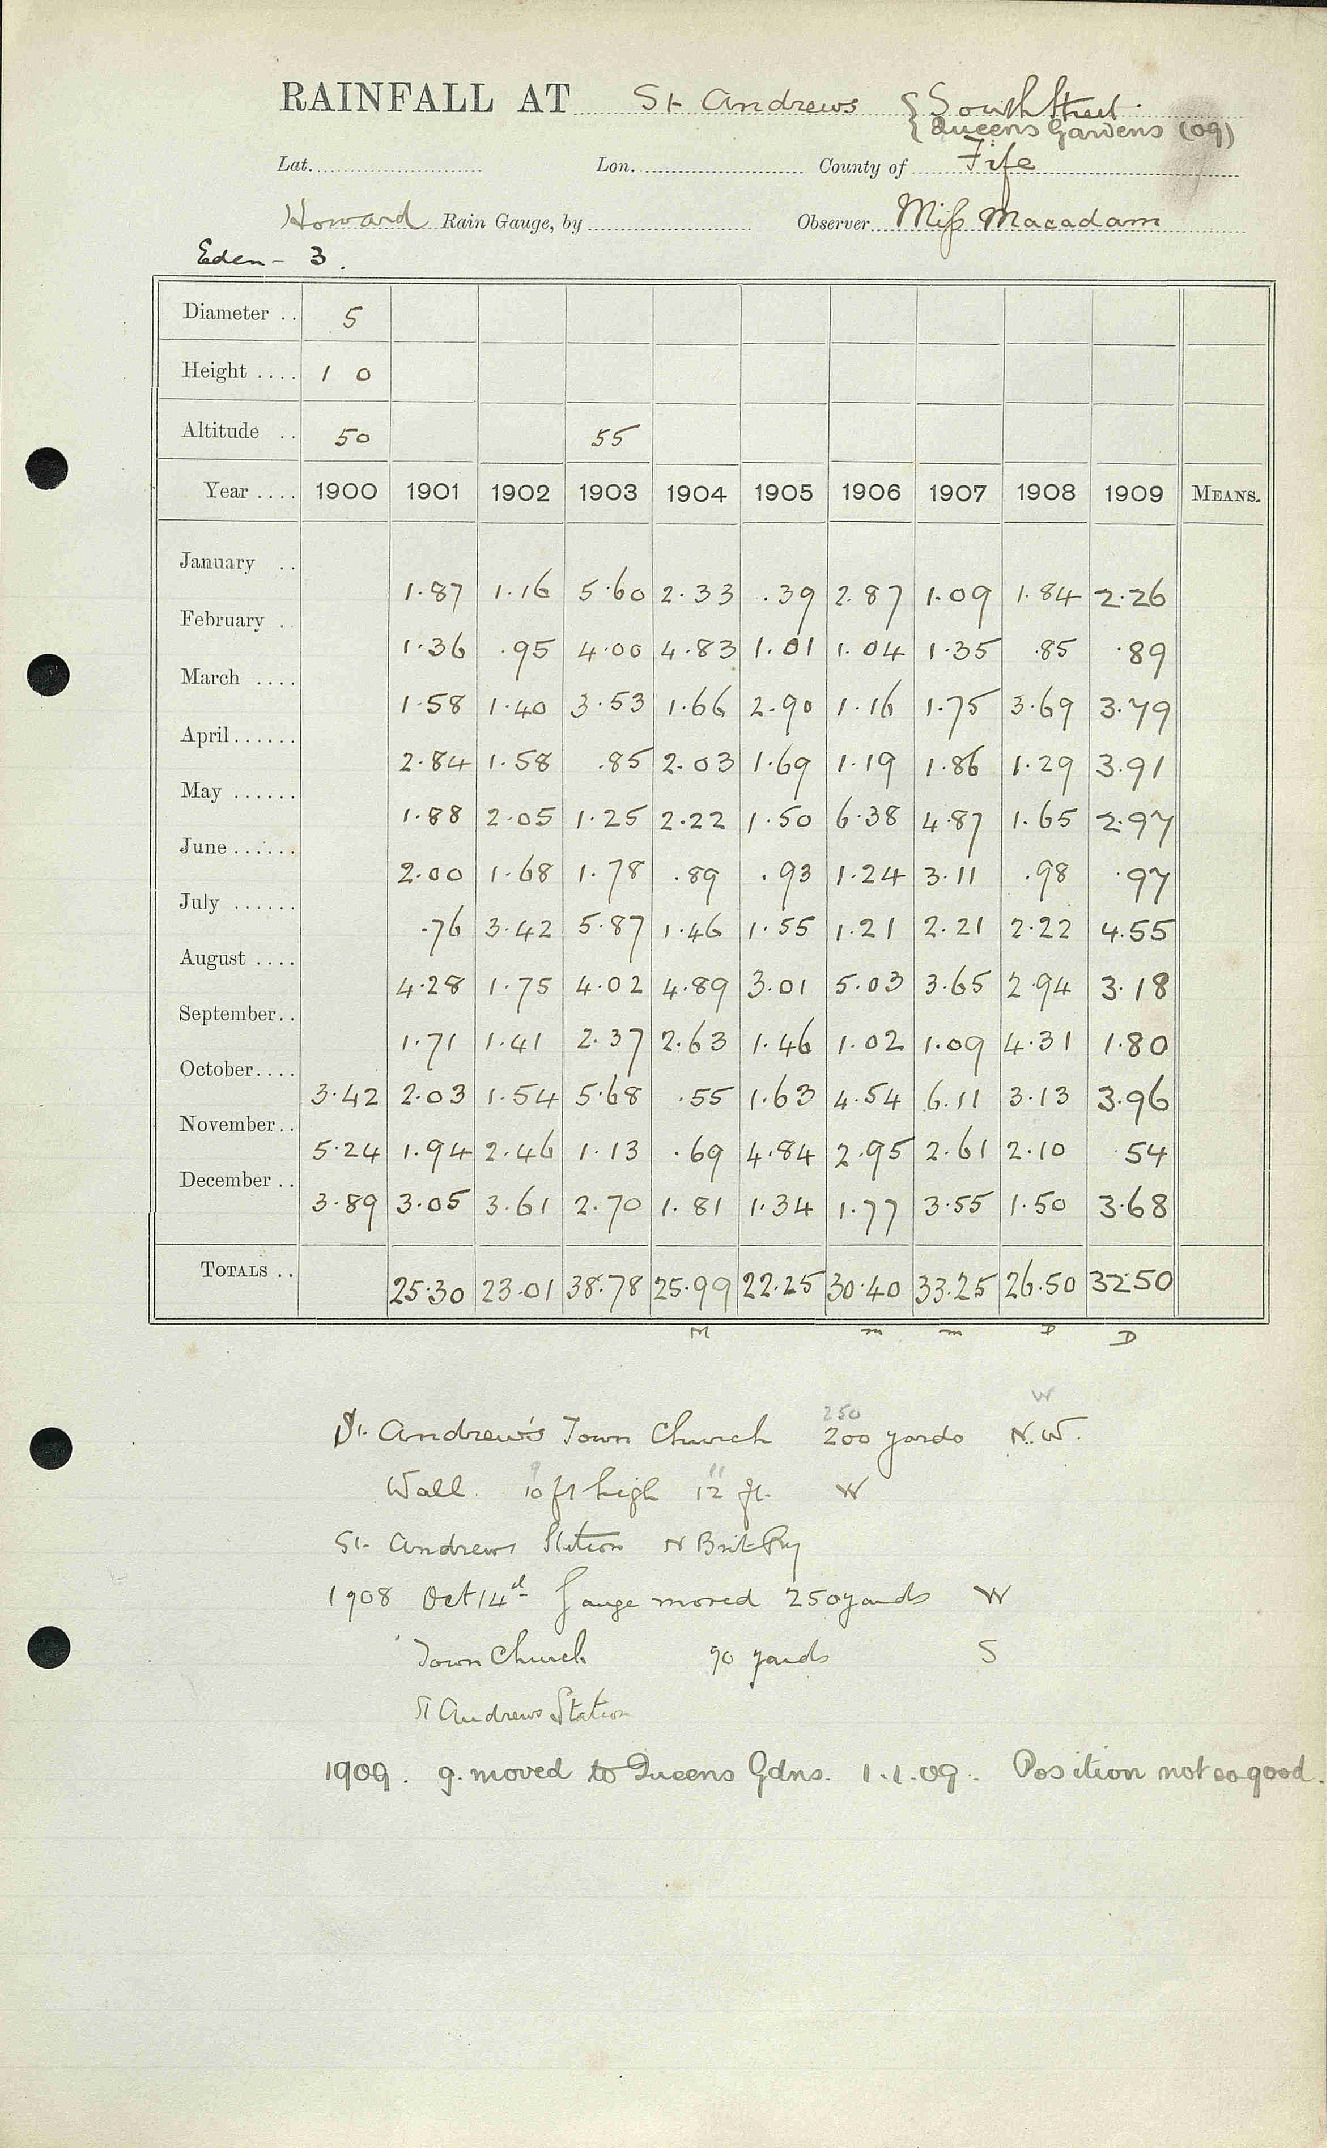 RAINFALL AT St Andrews { South Street.
{ Queens Gardens (09)
Lat. Lon. County of Fife
Howard Rain Gauge, by Observer Miss Macadam
Eden - 3.
Diameter .. 5
Height .... 1 0
Altitude .. 50 55
Year .... 1900 1901 1902 1903 1904 1905 1906 1907 1908 1909 MEANS.
January .. 1.87 1.16 5.60 2.33 .39 2.87 1.09 1.84 2.26
February . 1.36 .95 4.00 4.83 1.01 1.04 1.35 .85 .89
March .... 1.58 1.40 3.53 1.66 2.90 1.16 1.75 3.69 3.79
April...... 2.84 1.58 .85 2.03 1.69 1.19 1.86 1.29 3.91
May ...... 1.88 2.05 1.25 2.22 1.50 6.38 4.87 1.65 2.97
June ...... 2.00 1.68 1.78 .89 .93 1.24 3.11 .98 .97
July ...... .76 3.42 5.87 1.46 1.55 1.21 2.21 2.22 4.55
August .... 4.28 1.75 4.02 4.89 3.01 5.03 3.65 2.94 3.18
September.. 1.71 1.41 2.37 2.63 1.46 1.02 1.09 4.31 1.80
October.... 3.42 2.03 1.54 5.68 .55 1.63 4.54 6.11 3.13 3.96
November.. 5.24 1.94 2.46 1.13 .69 4.84 2.95 2.61 2.10 54
December .. 3.89 3.05 3.61 2.70 1.81 1.34 1.77 3.55 1.50 3.68
TOTALS .. 25.30 23.01 38.78 25.99 22.25 30.40 33.25 26.50 32.50
M m m D D
250 W
St. Andrew's Town Church 200 yards N.W.
9 11
Wall. 10 ft high 12 ft. W
St. Andrews Station N Brit Ry
1908 Oct 14th Gauge moved 250 yards W
Town Church 90 yards S
St Andrews Station
1909. g. moved to Queens Gdns. 1.1.09. Position not so good.